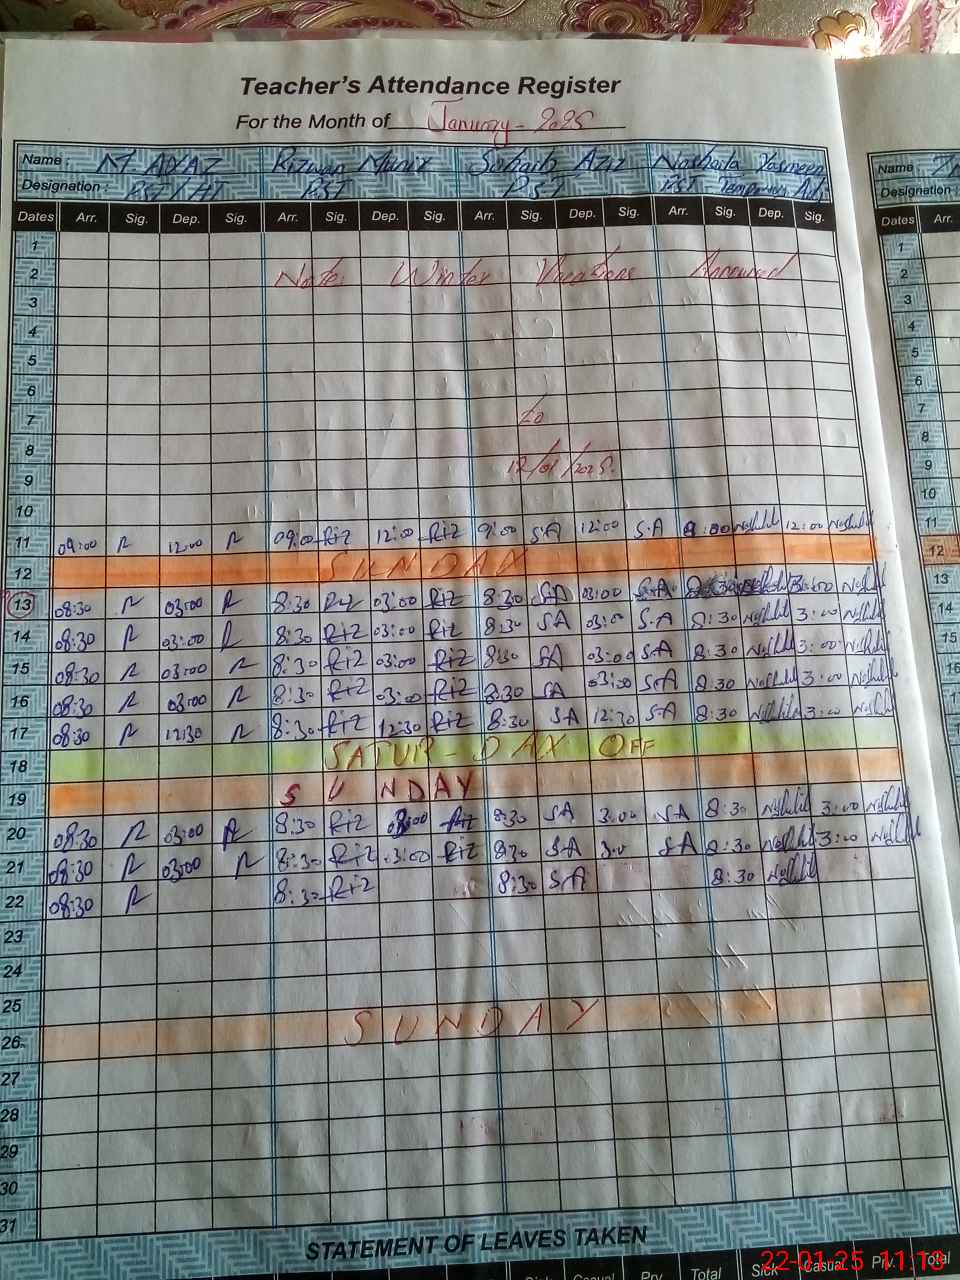 Teacher's Attendance Register
For the Month of January - 2025
Name : M. AYAZ Rizwan Munir Sohaib Aziz Noshaila Yasmeen Name :
Designation : PST/HT PST PST PST - Temporary Adj Designation :
Dates Arr. Sig. Dep. Sig. Arr. Sig. Dep. Sig. Arr. Sig. Dep. Sig. Arr. Sig. Dep. Sig. Dates Arr.
1 1
2 Note: Winter Vacations Announced 2
3 3
4 4
5 5
6 6
7 to 7
8 8
9 12/01/2025. 9
10 10
11 09:00 12:00 09:00 Riz 12:00 Riz 9:00 S.A 12:00 S.A 9:00 12:00 11
12 SUNDAY 12
13 08:30 03:00 8:30 Riz 03:00 Riz 8:30 SA 03:00 S.A 3:00 13
14 08:30 03:00 8:30 Riz 03:00 Riz 8:30 SA 03:00 S.A 8:30 3:00 14
15 08:30 03:00 8:30 Riz 03:00 Riz 8:30 SA 03:00 S.A 8:30 3:00 15
16 08:30 03:00 8:30 Riz 03:00 Riz 8:30 SA 03:00 S.A 8:30 3:00 16
17 08:30 12:30 8:30 Riz 12:30 Riz 8:30 S.A 12:30 S.A 8:30 3:00 17
18 SATUR-DAY OFF
19 SUNDAY
20 08:30 03:00 8:30 Riz 03:00 Riz 8:30 SA 3:00 SA 8:30 3:00
21 08:30 03:00 8:30 Riz 03:00 Riz 8:30 S.A 3:0 SA 8:30 3:00
22 08:30 8:30 Riz 8:30 S.A 8:30
23
24
25
26 SUNDAY
27
28
29
30
31
STATEMENT OF LEAVES TAKEN
Sick Casual Prv. Total Sick Casual Prv. Total
22-01-25 11:13